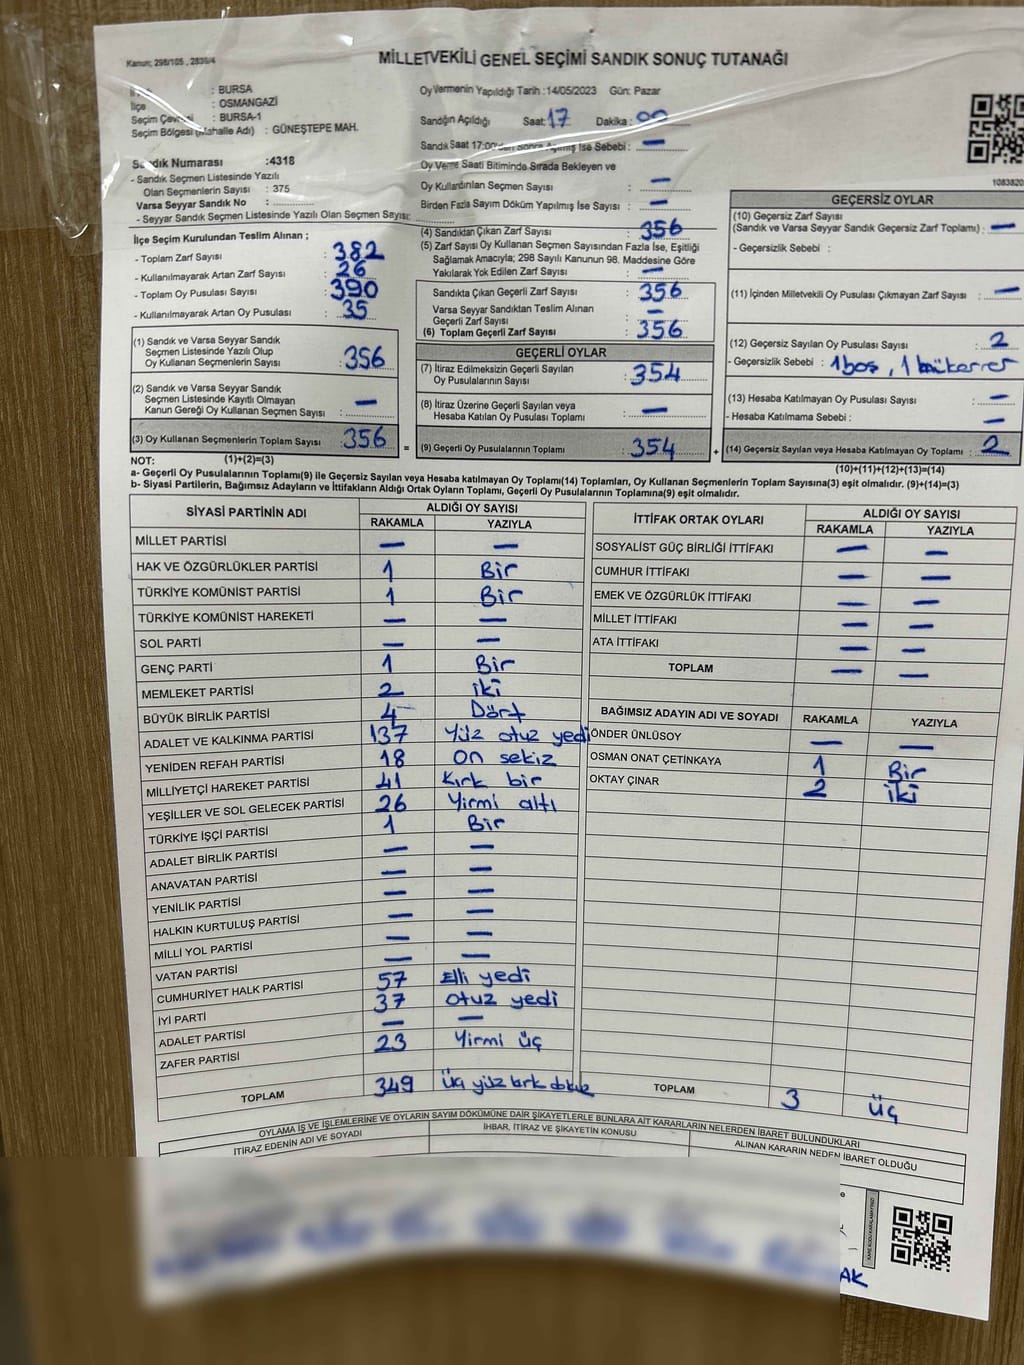 Kanun; 298/105 , 2839/4
MİLLETVEKİLİ GENEL SEÇİMİ SANDIK SONUÇ TUTANAĞI
: BURSA
İlçe : OSMANGAZİ
Seçim Çevresi : BURSA-1
Seçim Bölgesi (Mahalle Adı) : GÜNEŞTEPE MAH.
Sandık Numarası :4318
- Sandık Seçmen Listesinde Yazılı
Olan Seçmenlerin Sayısı : 375
Varsa Seyyar Sandık No :
- Seyyar Sandık Seçmen Listesinde Yazılı Olan Seçmen Sayısı:
Oy Vermenin Yapıldığı Tarih :14/05/2023 Gün: Pazar
Sandığın Açıldığı Saat: 17 Dakika : 00
Sandık Saat 17:00'dan Sonra Açılmış İse Sebebi : —
Oy Verme Saati Bitiminde Sırada Bekleyen ve
Oy Kullandırılan Seçmen Sayısı : —
Birden Fazla Sayım Döküm Yapılmış İse Sayısı : —
1083820
İlçe Seçim Kurulundan Teslim Alınan ;
- Toplam Zarf Sayısı : 382
- Kullanılmayarak Artan Zarf Sayısı : 26
- Toplam Oy Pusulası Sayısı : 390
- Kullanılmayarak Artan Oy Pusulası : 35
(1) Sandık ve Varsa Seyyar Sandık
Seçmen Listesinde Yazılı Olup
Oy Kullanan Seçmenlerin Sayısı : 356
(2) Sandık ve Varsa Seyyar Sandık
Seçmen Listesinde Kayıtlı Olmayan
Kanun Gereği Oy Kullanan Seçmen Sayısı : —
(3) Oy Kullanan Seçmenlerin Toplam Sayısı : 356
(4) Sandıktan Çıkan Zarf Sayısı : 356
(5) Zarf Sayısı Oy Kullanan Seçmen Sayısından Fazla İse, Eşitliği
Sağlamak Amacıyla; 298 Sayılı Kanunun 98. Maddesine Göre
Yakılarak Yok Edilen Zarf Sayısı : —
Sandıkta Çıkan Geçerli Zarf Sayısı : 356
Varsa Seyyar Sandıktan Teslim Alınan
Geçerli Zarf Sayısı : —
(6) Toplam Geçerli Zarf Sayısı : 356
GEÇERLİ OYLAR
(7) İtiraz Edilmeksizin Geçerli Sayılan
Oy Pusulalarının Sayısı : 354
(8) İtiraz Üzerine Geçerli Sayılan veya
Hesaba Katılan Oy Pusulası Toplamı : —
= (9) Geçerli Oy Pusulalarının Toplamı : 354
GEÇERSİZ OYLAR
(10) Geçersiz Zarf Sayısı
(Sandık ve Varsa Seyyar Sandık Geçersiz Zarf Toplamı) : —
- Geçersizlik Sebebi :
(11) İçinden Milletvekili Oy Pusulası Çıkmayan Zarf Sayısı : —
(12) Geçersiz Sayılan Oy Pusulası Sayısı : 2
- Geçersizlik Sebebi : 1 boş , 1 mükerrer
(13) Hesaba Katılmayan Oy Pusulası Sayısı : —
- Hesaba Katılmama Sebebi : —
+ (14) Geçersiz Sayılan veya Hesaba Katılmayan Oy Toplamı : 2
NOT: (1)+(2)=(3)
(10)+(11)+(12)+(13)=(14)
a- Geçerli Oy Pusulalarının Toplamı(9) ile Geçersiz Sayılan veya Hesaba katılmayan Oy Toplamı(14) Toplamları, Oy Kullanan Seçmenlerin Toplam Sayısına(3) eşit olmalıdır. (9)+(14)=(3)
b- Siyasi Partilerin, Bağımsız Adayların ve İttifakların Aldığı Ortak Oyların Toplamı, Geçerli Oy Pusulalarının Toplamına(9) eşit olmalıdır.
SİYASİ PARTİNİN ADI ALDIĞI OY SAYISI
RAKAMLA YAZIYLA
MİLLET PARTİSİ — —
HAK VE ÖZGÜRLÜKLER PARTİSİ 1 Bir
TÜRKİYE KOMÜNİST PARTİSİ 1 Bir
TÜRKİYE KOMÜNİST HAREKETİ — —
SOL PARTİ — —
GENÇ PARTİ 1 Bir
MEMLEKET PARTİSİ 2 iki
BÜYÜK BİRLİK PARTİSİ 4 Dört
ADALET VE KALKINMA PARTİSİ 137 Yüz otuz yedi
YENİDEN REFAH PARTİSİ 18 on sekiz
MİLLİYETÇİ HAREKET PARTİSİ 41 Kırk bir
YEŞİLLER VE SOL GELECEK PARTİSİ 26 Yirmi altı
TÜRKİYE İŞÇİ PARTİSİ 1 Bir
ADALET BİRLİK PARTİSİ — —
ANAVATAN PARTİSİ — —
YENİLİK PARTİSİ — —
HALKIN KURTULUŞ PARTİSİ — —
MİLLİ YOL PARTİSİ — —
VATAN PARTİSİ — —
CUMHURİYET HALK PARTİSİ 57 Elli yedi
İYİ PARTİ 37 otuz yedi
ADALET PARTİSİ — —
ZAFER PARTİSİ 23 Yirmi üç
TOPLAM 349 üç yüz kırk dokuz
İTTİFAK ORTAK OYLARI ALDIĞI OY SAYISI
RAKAMLA YAZIYLA
SOSYALİST GÜÇ BİRLİĞİ İTTİFAKI — —
CUMHUR İTTİFAKI — —
EMEK VE ÖZGÜRLÜK İTTİFAKI — —
MİLLET İTTİFAKI — —
ATA İTTİFAKI — —
TOPLAM — —
BAĞIMSIZ ADAYIN ADI VE SOYADI RAKAMLA YAZIYLA
ÖNDER ÜNLÜSOY — —
OSMAN ONAT ÇETİNKAYA 1 Bir
OKTAY ÇINAR 2 iki
TOPLAM 3 üç
OYLAMA İŞ VE İŞLEMLERİNE VE OYLARIN SAYIM DÖKÜMÜNE DAİR ŞİKAYETLERLE BUNLARA AİT KARARLARIN NELERDEN İBARET BULUNDUKLARI
İTİRAZ EDENİN ADI VE SOYADI İHBAR, İTİRAZ VE ŞİKAYETİN KONUSU ALINAN KARARIN NEDEN İBARET OLDUĞU
AK